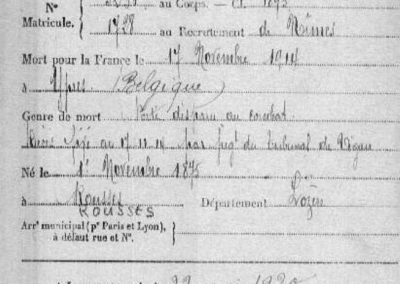 N° au Corps. — Cl. 1895
Matricule. 1728 au Recrutement de Nîmes
Mort pour la France le 17 Novembre 1914
à Ypres (Belgique)
Genre de mort Porté disparu au combat
Décès fixé au 17.11.14 par jugt du Tribunal de
Né le 1er Novembre 1875
à Rousses Département Lozère
ROUSSES
Arrt municipal (pr Paris et Lyon),
à défaut rue et N°.